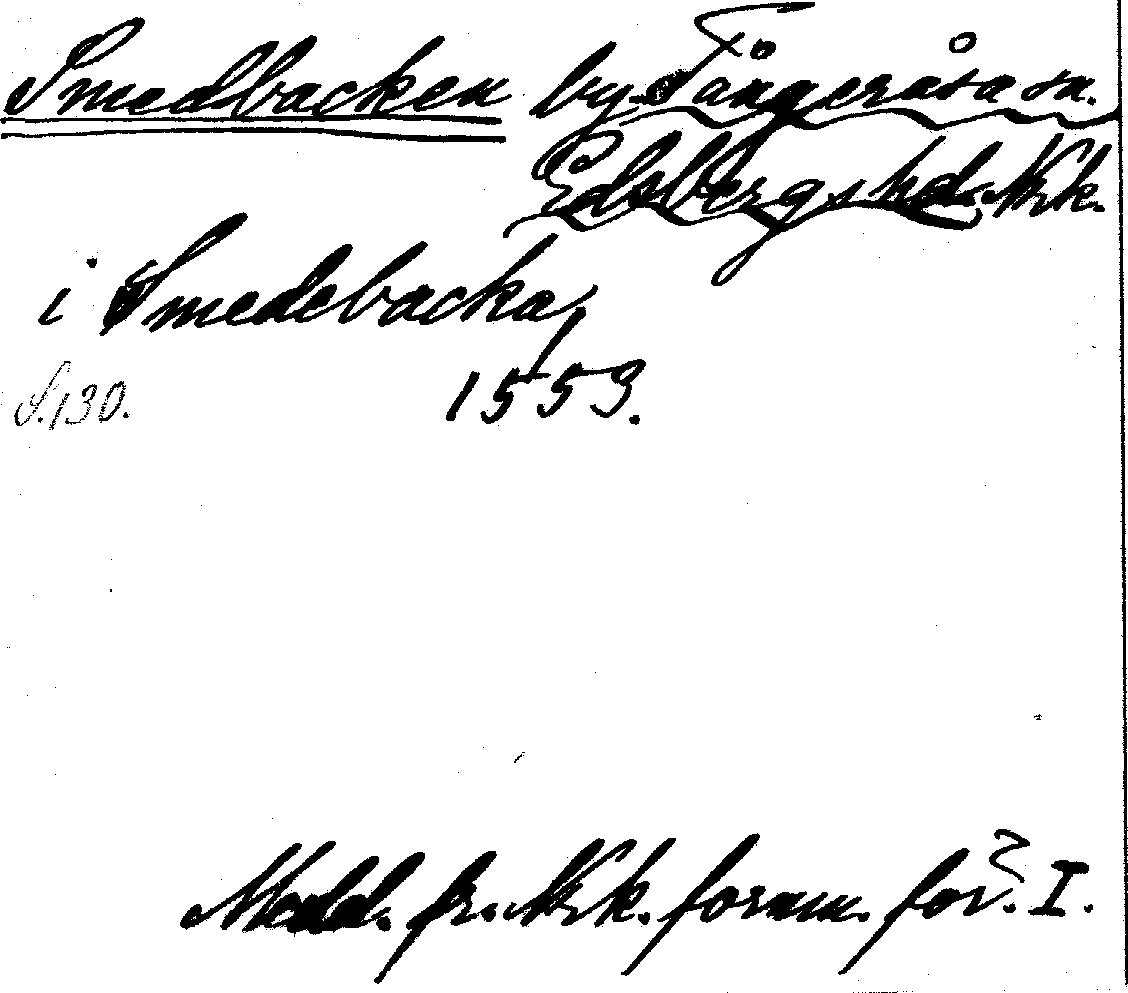 Smedbacken by Tångeråsa sn.
Edsbergs hd. Nrk.
i Smedebacka,
S. 130. 1553.
Medd. fr. Nrk. fornm. för. I.